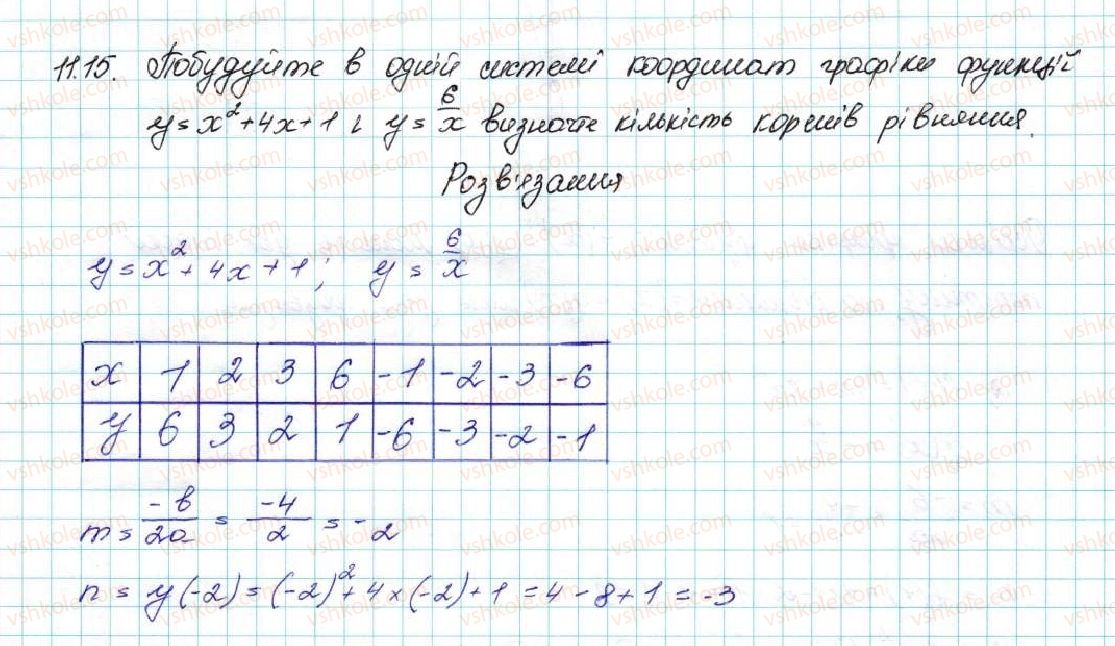 11.15. Побудуйте в одній системі координат графіки функцій
y = x² + 4x + 1 і y = 6/x визначте кількість коренів рівняння.
Розв'язання
y = x² + 4x + 1; y = 6/x
x 1 2 3 6 -1 -2 -3 -6
y 6 3 2 1 -6 -3 -2 -1
m = -b/2a = -4/2 = -2
n = y(-2) = (-2)² + 4 × (-2) + 1 = 4 - 8 + 1 = -3